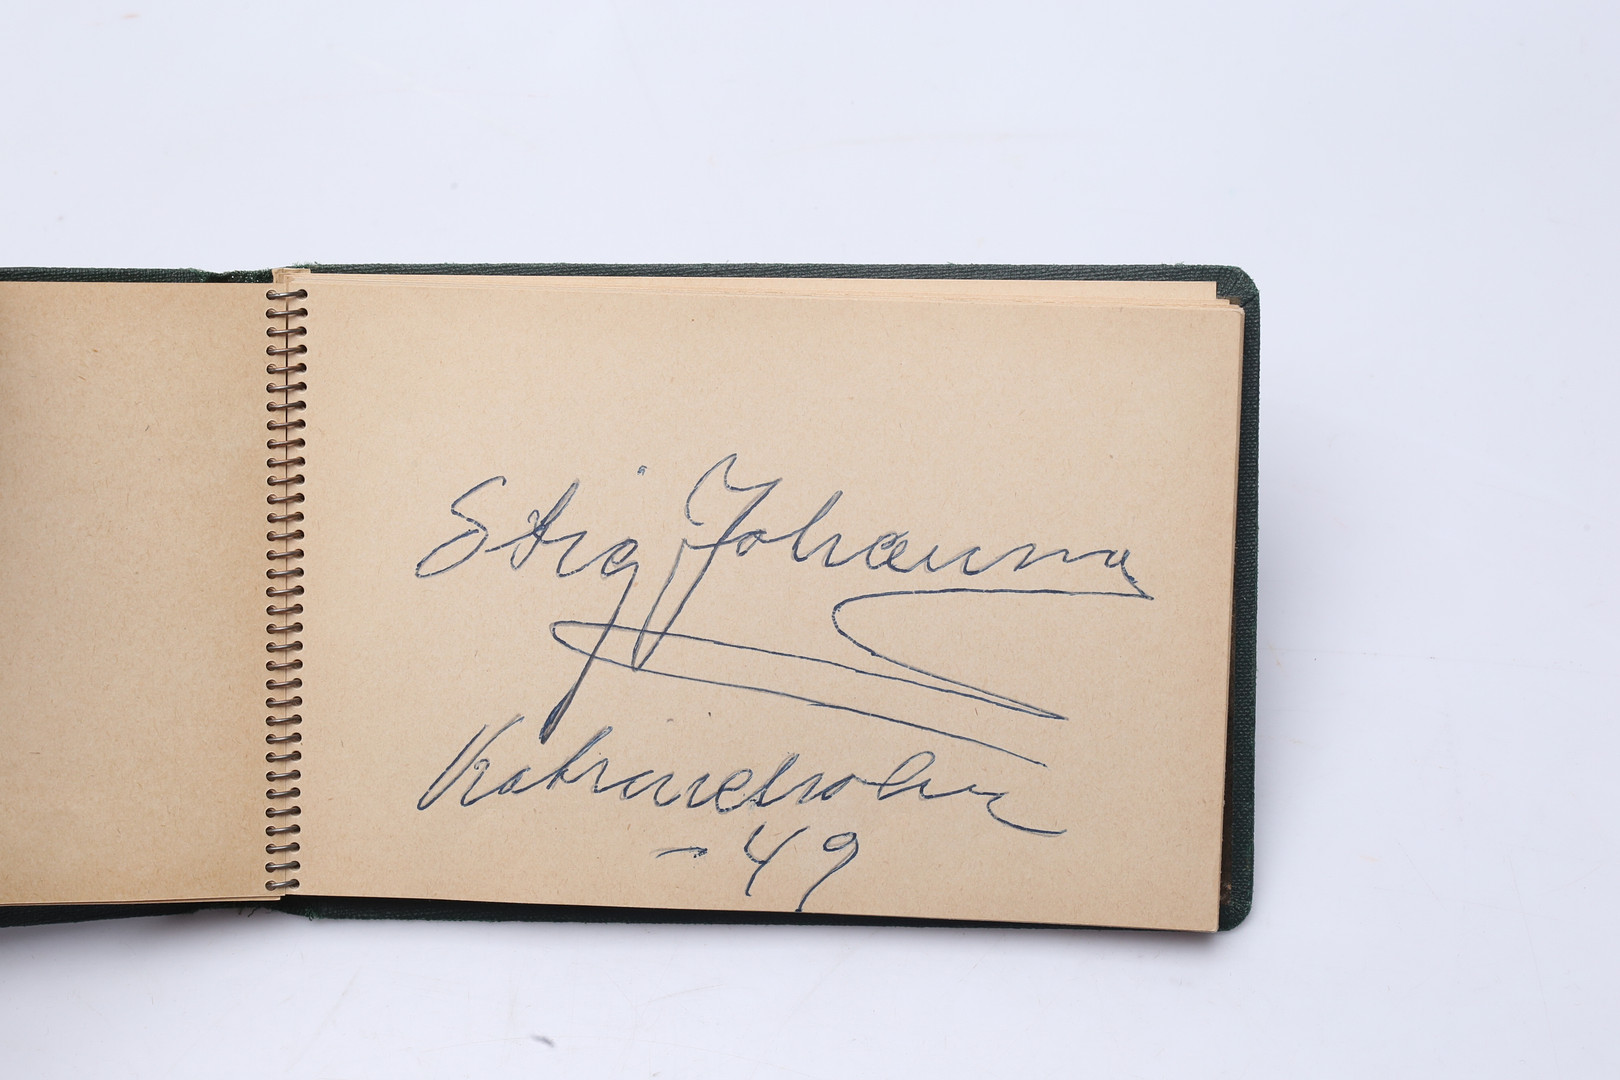 Stig Johanna
Katrineholm
-49